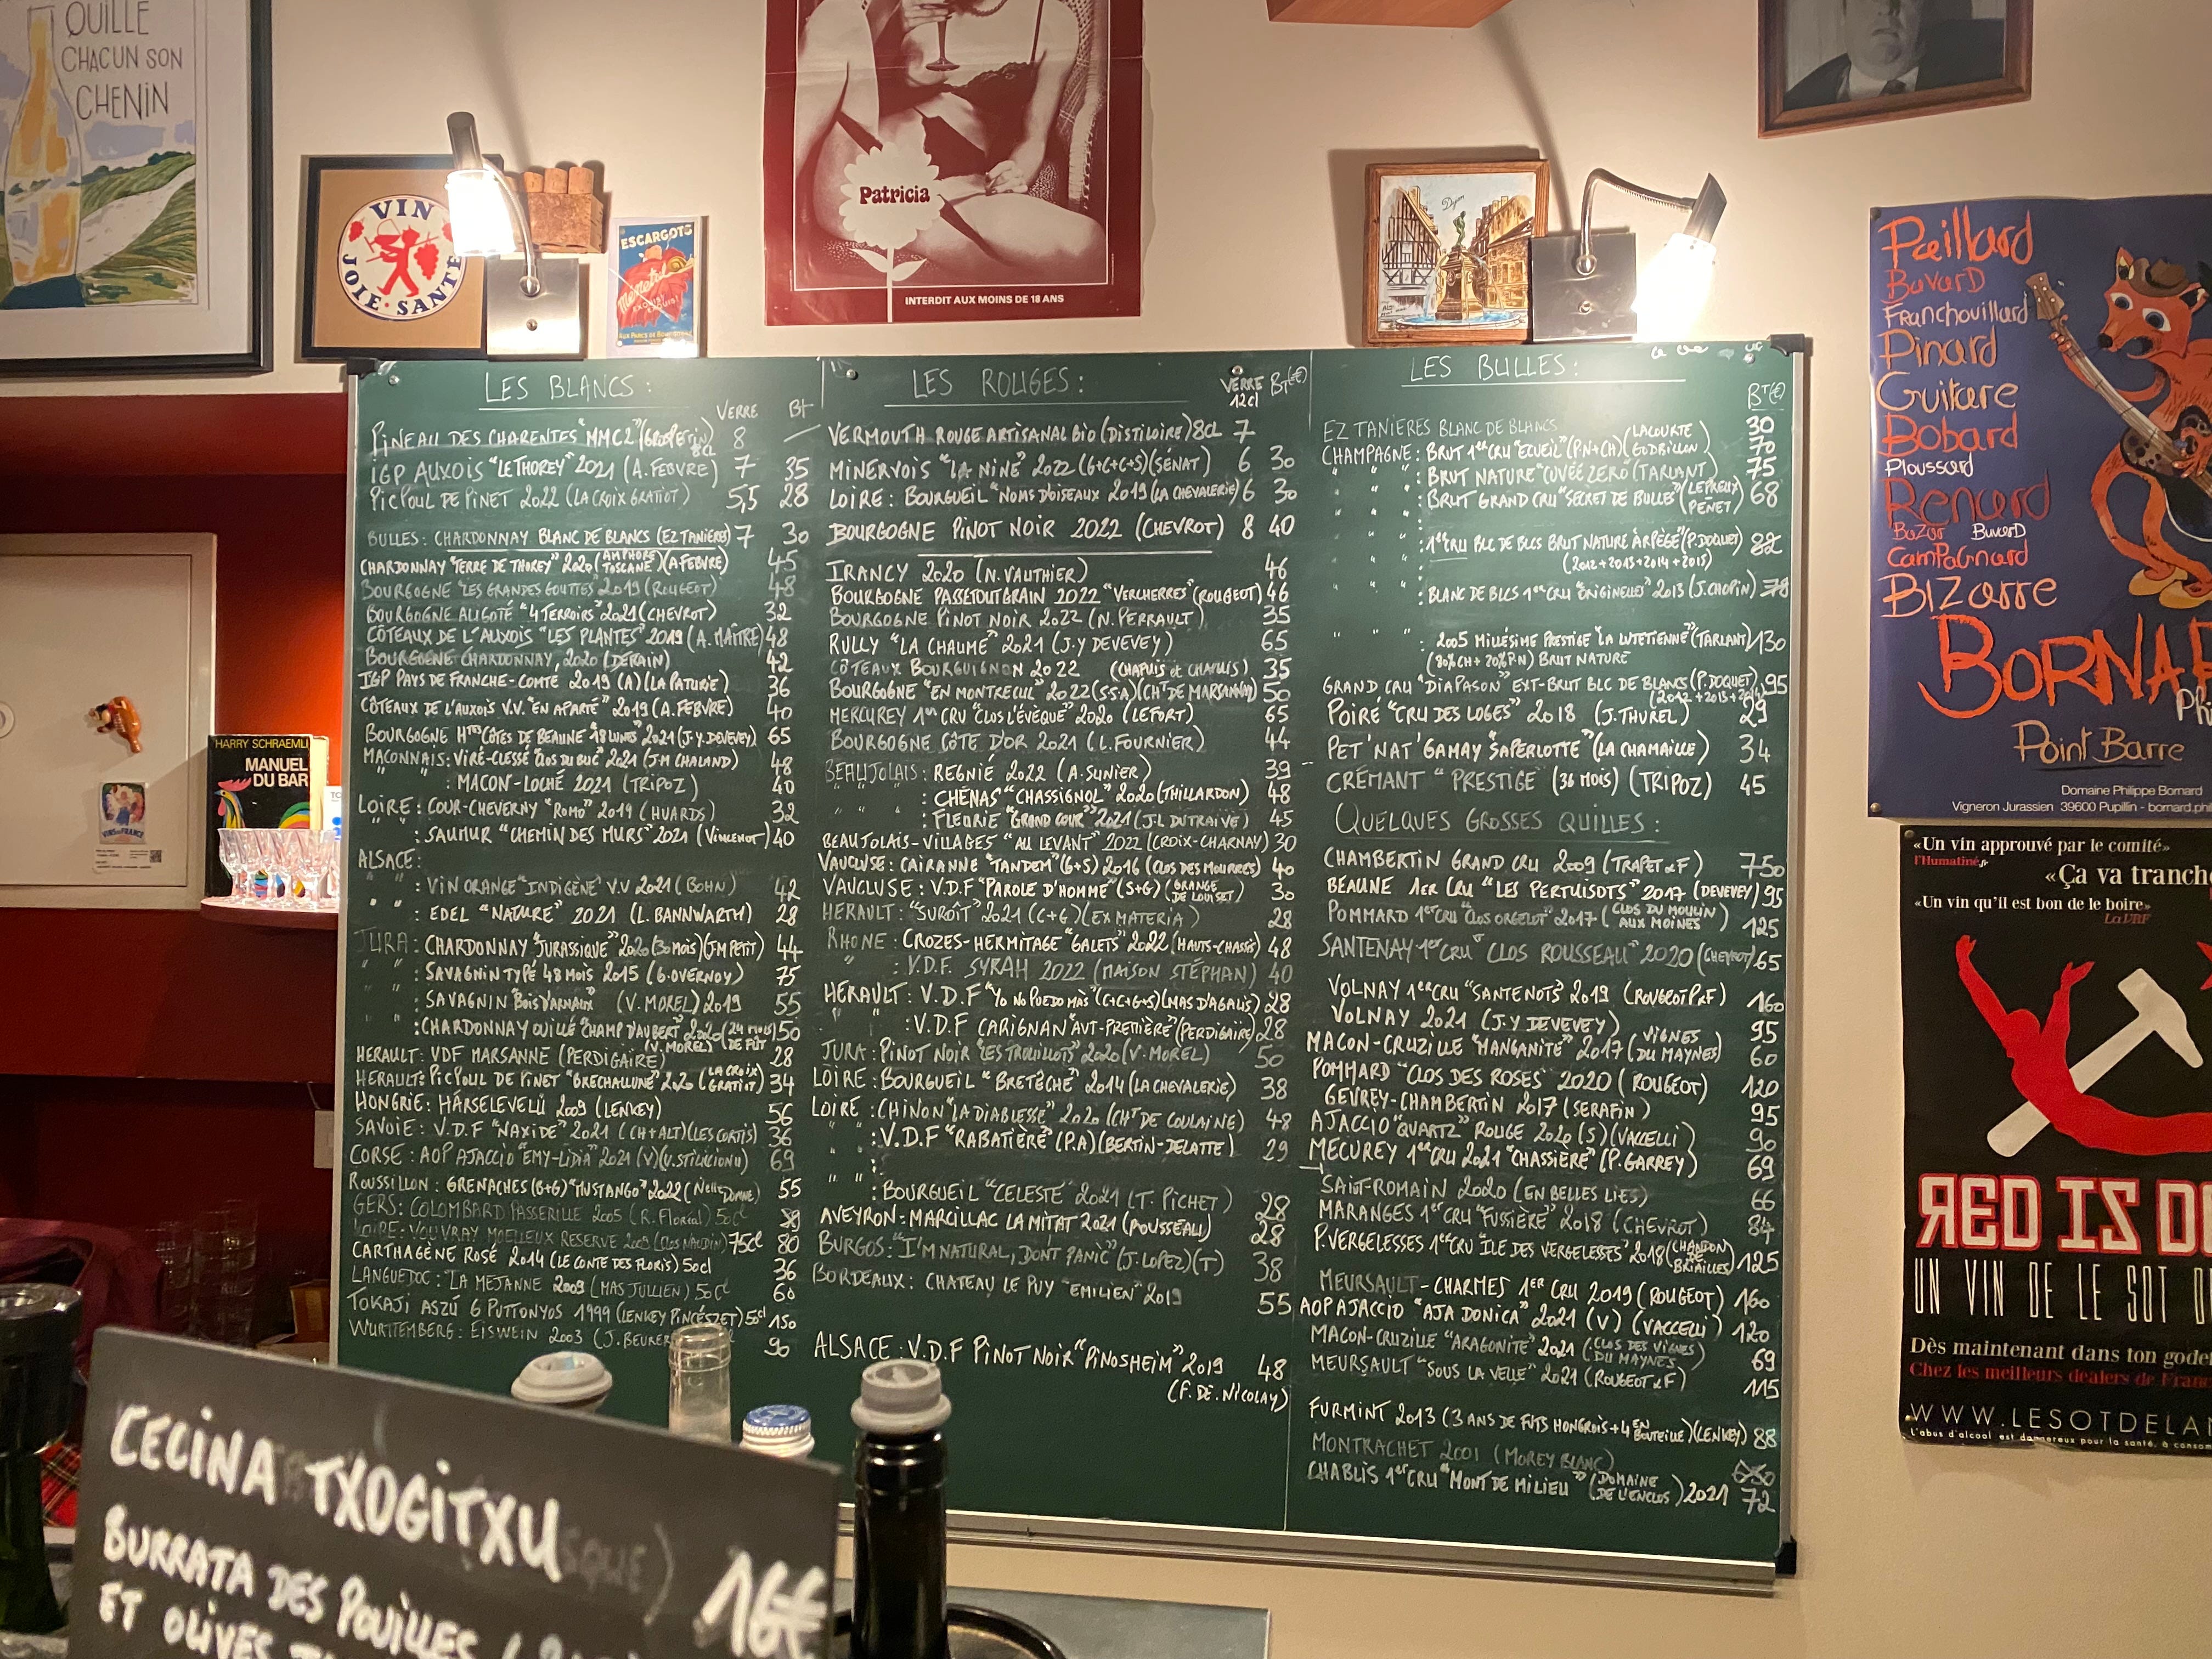 QUILLE
CHACUN SON
CHENIN
VIN
JOIE · SANTE
ESCARGOTS
Ménétrel
Patricia
INTERDIT AUX MOINS DE 18 ANS
Dijon
HARRY SCHRAEMLI
MANUEL
DU BAR
VINS de FRANCE
LES BLANCS :
VERRE Bt
PINEAU DES CHARENTES "MMC2" 8cl 8
IGP AUXOIS "LE THOREY" 2021 (A. FEBVRE) 7 35
PICPOUL DE PINET 2022 (LA CROIX GRATIOT) 5,5 28
BULLES : CHARDONNAY BLANC DE BLANCS (EZ TANIÈRES) 7 30
CHARDONNAY "TERRE DE THOREY" 2020 (AMPHORE TOSCANE) (A FEBVRE) 45
BOURGOGNE "LES GRANDES GOUTTES" 2019 (ROUGEOT) 48
BOURGOGNE ALIGOTÉ "4 TERROIRS" 2021 (CHEVROT) 32
CÔTEAUX DE L'AUXOIS "LES PLANTES" 2019 (A. MAÎTRE) 48
BOURGOGNE CHARDONNAY, 2020 (DERAIN) 42
IGP PAYS DE FRANCHE-COMTÉ 2019 (A) (LA PATURIE) 36
CÔTEAUX DE L'AUXOIS V.V. "EN APARTÉ" 2019 (A. FEBVRE) 40
BOURGOGNE HTES CÔTES DE BEAUNE "18 LUNES" 2021 (J-Y. DEVEVEY) 65
MACONNAIS : VIRÉ-CLESSÉ "CLOS DU BUC" 2021 (J-M CHALAND) 48
" " : MACON-LOCHÉ 2021 (TRIPOZ) 40
LOIRE : COUR-CHEVERNY "ROMO" 2019 (HUARDS) 32
" " : SAUMUR "CHEMIN DES MURS" 2021 (VINCENOT) 40
ALSACE :
" " : VIN ORANGE "INDIGÈNE" V.V 2021 (BOHN) 42
" " : EDEL "NATURE" 2021 (L. BANNWARTH) 28
JURA : CHARDONNAY "JURASSIQUE" 2020 (30 MOIS) (JM PETIT) 44
" " : SAVAGNIN TYPÉ 48 MOIS 2015 (G. OVERNOY) 75
" " : SAVAGNIN "BOIS D'ARNAUX" (V. MOREL) 2019 55
" " : CHARDONNAY OUILLÉ "CHAMP D'AUBERT" 2020 (24 MOIS DE FÛT) (V. MOREL) 50
HERAULT : VDF MARSANNE (PERDIGAÏRE) 28
HERAULT : PICPOUL DE PINET "BRECHALLUNE" 2020 (LA CROIX GRATIOT) 34
HONGRIE : HÁRSELEVELÜ 2009 (LENKEY) 56
SAVOIE : V.D.F "NAXIDE" 2021 (CH+ALT) (LES CORTIS) 36
CORSE : AOP AJACCIO "EMY-LIDIA" 2021 (V) (U. STILICIONU) 69
ROUSSILLON : GRENACHES (B+G) "MUSTANGO" 2022 55
GERS : COLOMBARD PASSERILLÉ 2005 (R. Floréal) 50cl 39
LOIRE : VOUVRAY MOELLEUX RESERVE 2009 (CLOS NAUDIN) 75cl 80
CARTHAGÈNE ROSÉ 2014 (LE CONTE DES FLORIS) 50cl 36
LANGUEDOC : "LA MEJANNE" 2009 (MAS JULLIEN) 50cl 60
TOKAJI ASZÚ 6 PUTTONYOS 1999 (LENKEY PINCÉSZET) 50cl 150
WURTTEMBERG : EISWEIN 2003 (J. BEURER 90
LES ROUGES :
VERRE 12cl BT(€)
VERMOUTH ROUGE ARTISANAL BIO (DISTILOIRE) 8cl 7
MINERVOIS "LA NINE" 2022 (G+C+C+S) (SÉNAT) 6 30
LOIRE : BOURGUEIL "NOMS D'OISEAUX 2019 (LA CHEVALERIE) 6 30
BOURGOGNE PINOT NOIR 2022 (CHEVROT) 8 40
IRANCY 2020 (N. VAUTHIER) 46
BOURGOGNE PASSETOUTGRAIN 2022 "VERCHERRES" (ROUGEOT) 46
BOURGOGNE PINOT NOIR 2022 (N. PERRAULT) 35
RULLY "LA CHAUME" 2021 (J.Y DEVEVEY) 65
CÔTEAUX BOURGUIGNON 2022 (CHAPUIS et CHAPUIS) 35
BOURGOGNE "EN MONTRECUL" 2022 (S.S.A) (CHT DE MARSANNAY) 50
MERCUREY 1er CRU "CLOS L'ÉVÊQUE" 2020 (LEFORT) 65
BOURGOGNE CÔTE D'OR 2021 (L. FOURNIER) 44
BEAUJOLAIS : REGNIÉ 2022 (A. SUNIER) 39
" " : CHÉNAS "CHASSIGNOL" 2020 (THILLARDON) 48
" " : FLEURIE "GRAND COUR" 2021 (J-L DUTRAIVE) 45
BEAUJOLAIS-VILLAGES "AU LEVANT" 2022 (CROIX-CHARNAY) 30
VAUCLUSE : CAIRANNE "TANDEM" (G+S) 2016 (CLOS DES MOURRES) 40
VAUCLUSE : V.D.F "PAROLE D'HOMME" (S+G) 30
HERAULT : "SUROÎT" 2021 (C+G) (EX MATERIA) 28
RHONE : CROZES-HERMITAGE "GALETS" 2022 (HAUTS-CHASSIS) 48
" : V.D.F. SYRAH 2022 (MAISON STÉPHAN) 40
HERAULT : V.D.F "YO NO PUEDO MAS" (C+C+G+S) (MAS D'AGALIS) 28
" " : V.D.F CARIGNAN "AVT-PREMIÈRE" (PERDIGAÏRE) 28
JURA : PINOT NOIR "LES TROUILLOTS" 2020 (V. MOREL) 50
LOIRE : BOURGUEIL "BRETÊCHE" 2014 (LA CHEVALERIE) 38
LOIRE : CHINON "LA DIABLESSE" 2020 (CHT DE COULAINE) 48
" " : V.D.F "RABATIÈRE" (P.A) (BERTIN-DELATTE) 29
" " : BOURGUEIL "CELESTE" 2021 (T. PICHET) 28
AVEYRON : MARCILLAC LA MITAT 2021 (POUSSEAU) 28
BURGOS : "I'M NATURAL, DON'T PANIC" (J. LOPEZ) (T) 38
BORDEAUX : CHATEAU LE PUY "EMILIEN" 2019 55
ALSACE : V.D.F PINOT NOIR "PINOSHEIM" 2019 48
(F. DE. NICOLAY)
LES BULLES :
BT(€)
EZ TANIÈRES BLANC DE BLANCS 30
CHAMPAGNE : BRUT 1er CRU "ECUEIL" (PN+CH) (LACOURTE GODBILLON) 70
" " " : BRUT NATURE "CUVÉE ZERO" (TARLANT) 75
" " " : BRUT GRAND CRU "SECRET DE BULLES" (LEPREUX PENET) 68
" " " : 1er CRU BLC DE BLCS BRUT NATURE ARPÈGE (P. DOQUET) 82
(2012+2013+2014+2015)
" " " : BLANC DE BLCS 1er CRU "ORIGINELLES" 2013 (J. CHOPIN) 78
" " " : 2005 MILLÉSIME PRESTIGE "LA LUTETIENNE" (TARLANT) 130
(80% CH + 20% P.N) BRUT NATURE
GRAND CRU "DIAPASON" EXT-BRUT BLC DE BLANCS (P. DOQUET) 95
POIRÉ "CRU DES LOGES" 2018 (J. THUREL) 29
PET'NAT' GAMAY "SAPERLOTTE" (LA CHAMAILLE) 34
CRÉMANT "PRESTIGE" (36 MOIS) (TRIPOZ) 45
QUELQUES GROSSES QUILLES :
CHAMBERTIN GRAND CRU 2009 (TRAPET & F) 750
BEAUNE 1er CRU "LES PERTUISOTS" 2017 (DEVEVEY) 95
POMMARD 1er CRU "CLOS ORGELOT" 2017 (CLOS DU MOULIN AUX MOINES) 125
SANTENAY 1er CRU "CLOS ROUSSEAU" 2020 (CHEVROT) 65
VOLNAY 1er CRU "SANTENOTS" 2019 (ROUGEOT P&F) 160
VOLNAY 2021 (J.Y DEVEVEY) 95
MACON-CRUZILLE "MANGANITE" 2017 (VIGNES DU MAYNES) 60
POMMARD "CLOS DES ROSES" 2020 (ROUGEOT) 120
GEVREY-CHAMBERTIN 2017 (SERAFIN) 95
AJACCIO "QUARTZ" ROUGE 2020 (S) (VACCELLI) 90
MECUREY 1er CRU 2021 "CHASSIÈRE" (P. GARREY) 69
SAINT-ROMAIN 2020 (EN BELLES LIES) 66
MARANGES 1er CRU "FUSSIÈRE" 2018 (CHEVROT) 84
P. VERGELESSES 1er CRU "ILE DES VERGELESSES" 2018 (CHANDON DE BRIAILLES) 125
MEURSAULT-CHARMES 1ER CRU 2019 (ROUGEOT) 160
AOP AJACCIO "AJA DONICA" 2021 (V) (VACCELLI) 120
MACON-CRUZILLE "ARAGONITE" 2021 (CLOS DES VIGNES DU MAYNES) 69
MEURSAULT "SOUS LA VELLE" 2021 (ROUGEOT & F) 115
FURMINT 2013 (3 ANS DE FUTS HONGROIS + 4 EN BOUTEILLE) (LENKEY) 88
MONTRACHET 2001 (MOREY BLANC)
CHABLIS 1er CRU "MONT DE MILIEU" (DOMAINE DE L'ENCLOS) 2021 72
Pœillard
BuvarD
Franchouillard
Pinard
Guitare
Bobard
Ploussard
Renard
BaZar BuvarD
CamPaGnard
BIZarre
BORNAR
Point Barre
Domaine Philippe Bornard
Vigneron Jurassien 39600 Pupillin - bornard.phi
«Un vin approuvé par le comité»
l'Humatiné.fr
«Ça va tranch
«Un vin qu'il est bon de le boire»
La PRF
RED IZ D
UN VIN DE LE SOT D
Dès maintenant dans ton gode
Chez les meilleurs dealers de Franc
WWW.LESOTDELA
L'abus d'alcool est dangereux pour la santé, à consom
CECINA TXOGITXU 16€
BURRATA DES POUILLES
ET OLIVES